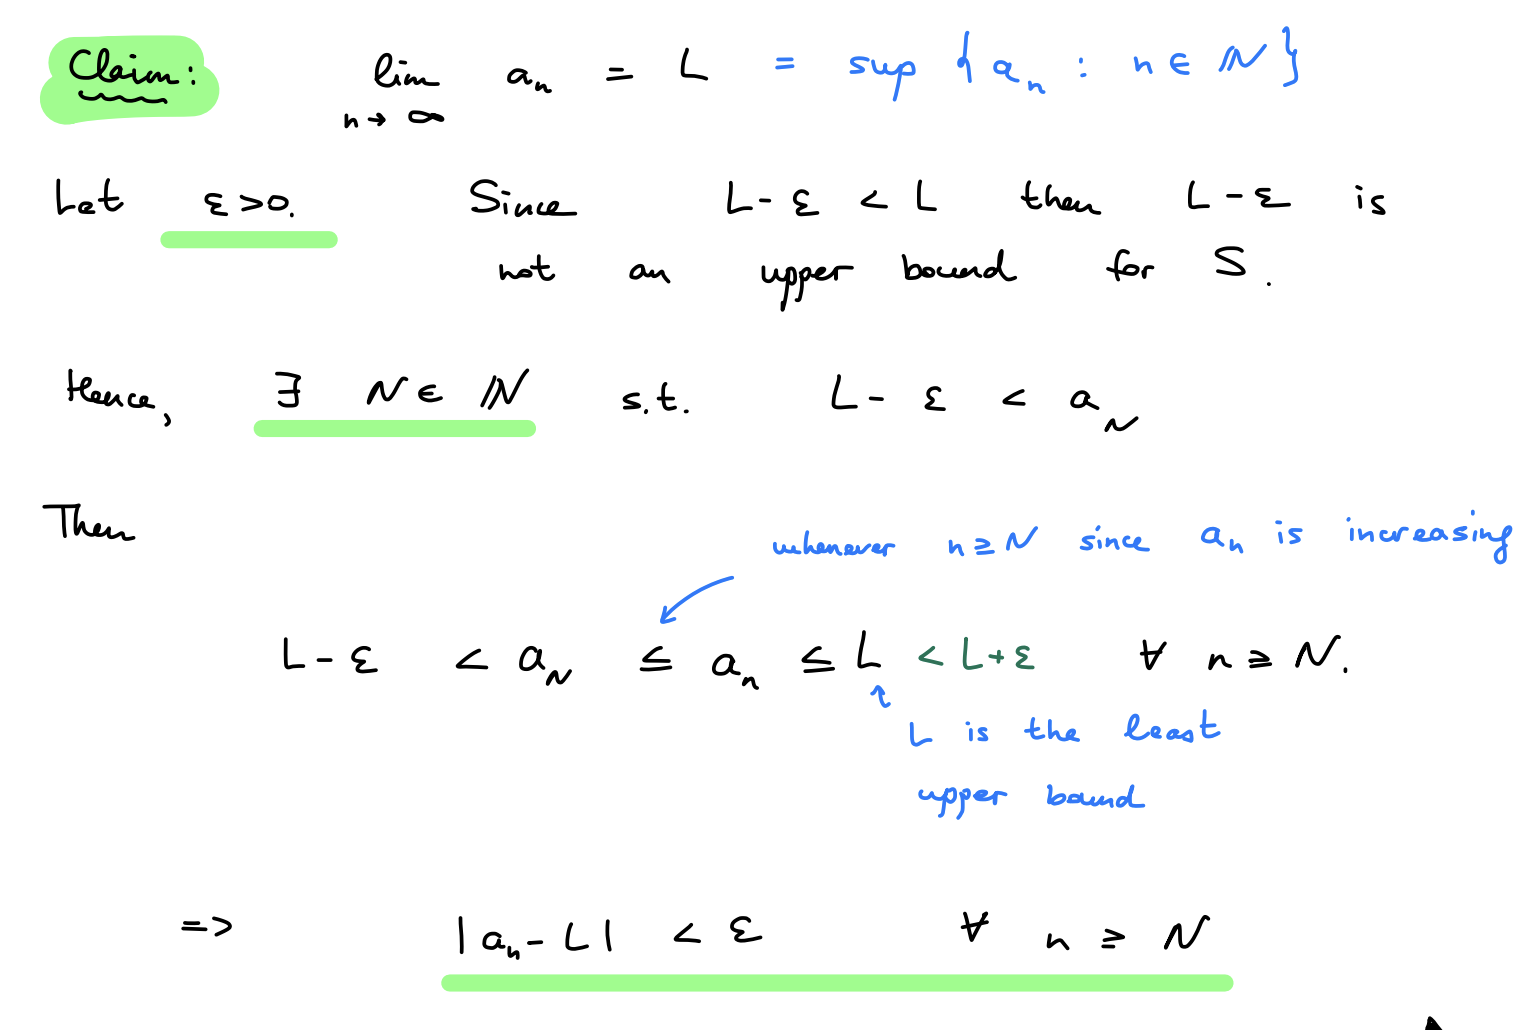 Claim: lim n→∞ aₙ = L = sup {aₙ : n ∈ ℕ}
Let ε>0. Since L-ε < L then L-ε is
not an upper bound for S.
Hence, ∃ N ∈ ℕ s.t. L-ε < a_N
Then
whenever n≥N since aₙ is increasing
L-ε < a_N ≤ aₙ ≤ L < L+ε ∀ n ≥ N.
L is the least
upper bound
=> |aₙ-L| < ε ∀ n ≥ N